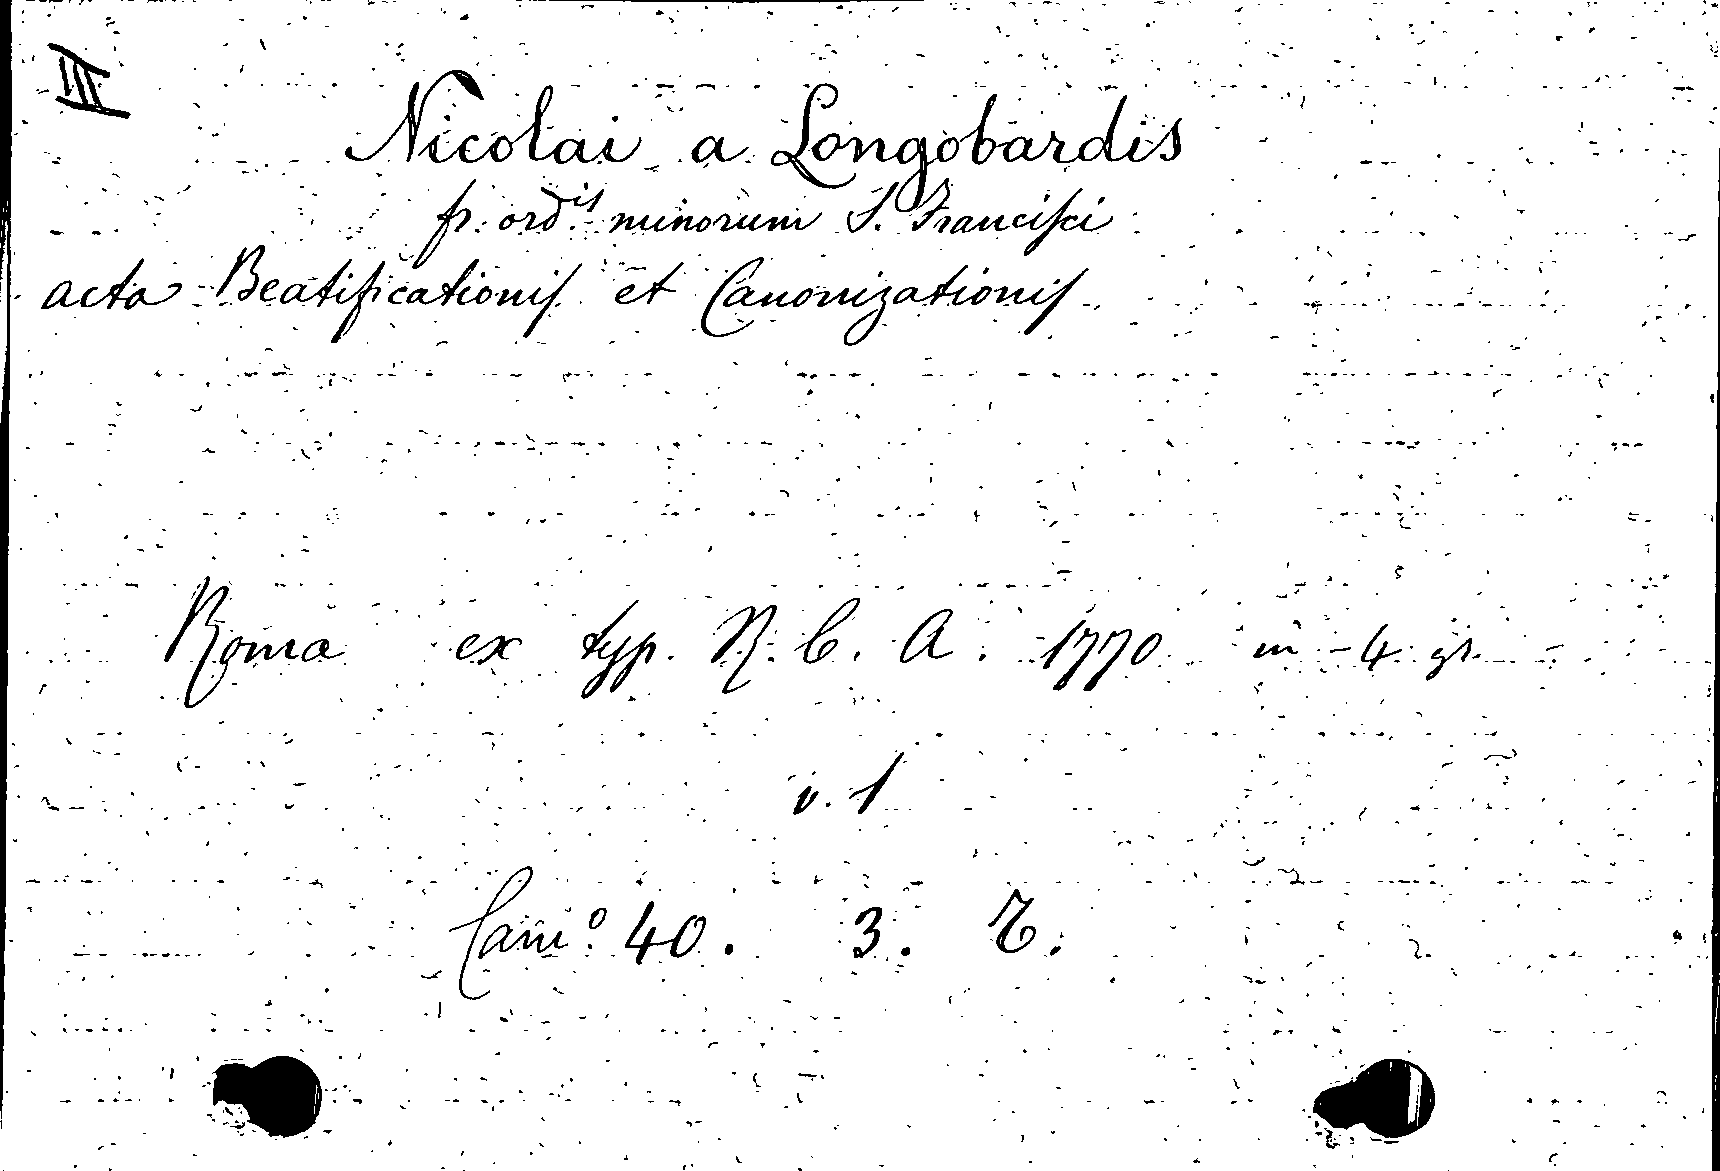 III
Nicolai a Longobardis
fr. ord.is minorum S. Francisci
acta Beatificationis et Canonizationis
Roma ex typ. R. C. A. 1770 in 4 gr.
v. 1
Cam.o 40. 3. T.